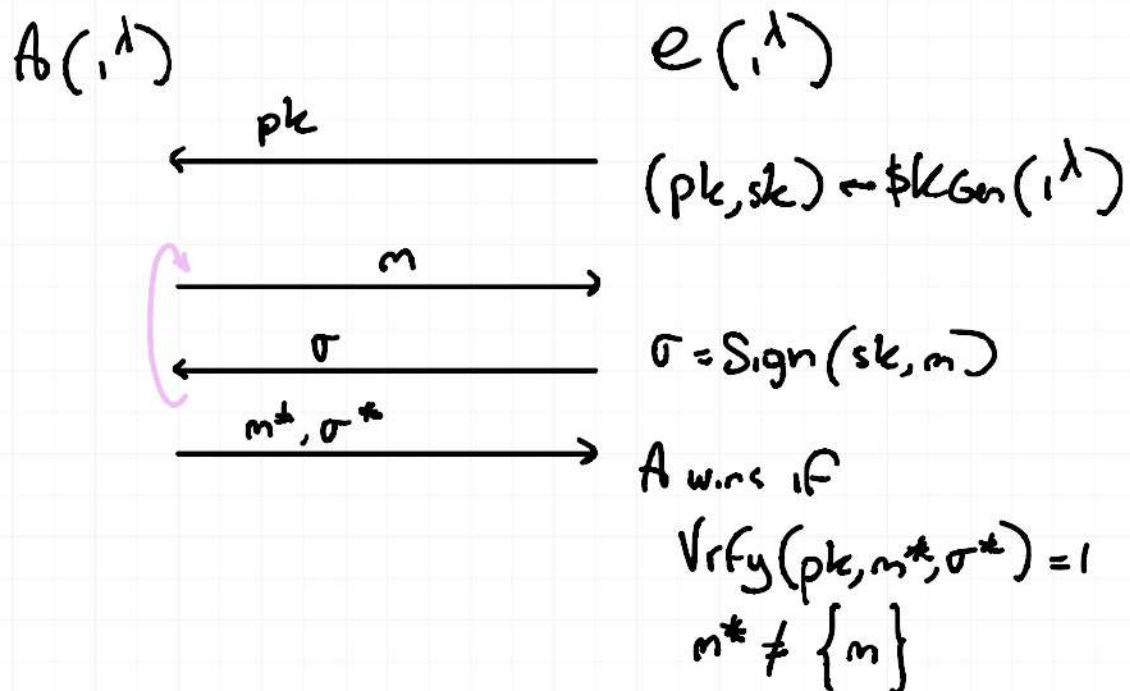 A(1^λ) C(1^λ)
pk
(pk, sk) ←$ KGen(1^λ)
m
σ
σ = Sign(sk, m)
m*, σ*
A wins if
Vrfy(pk, m*, σ*) = 1
m* ≠ {m}